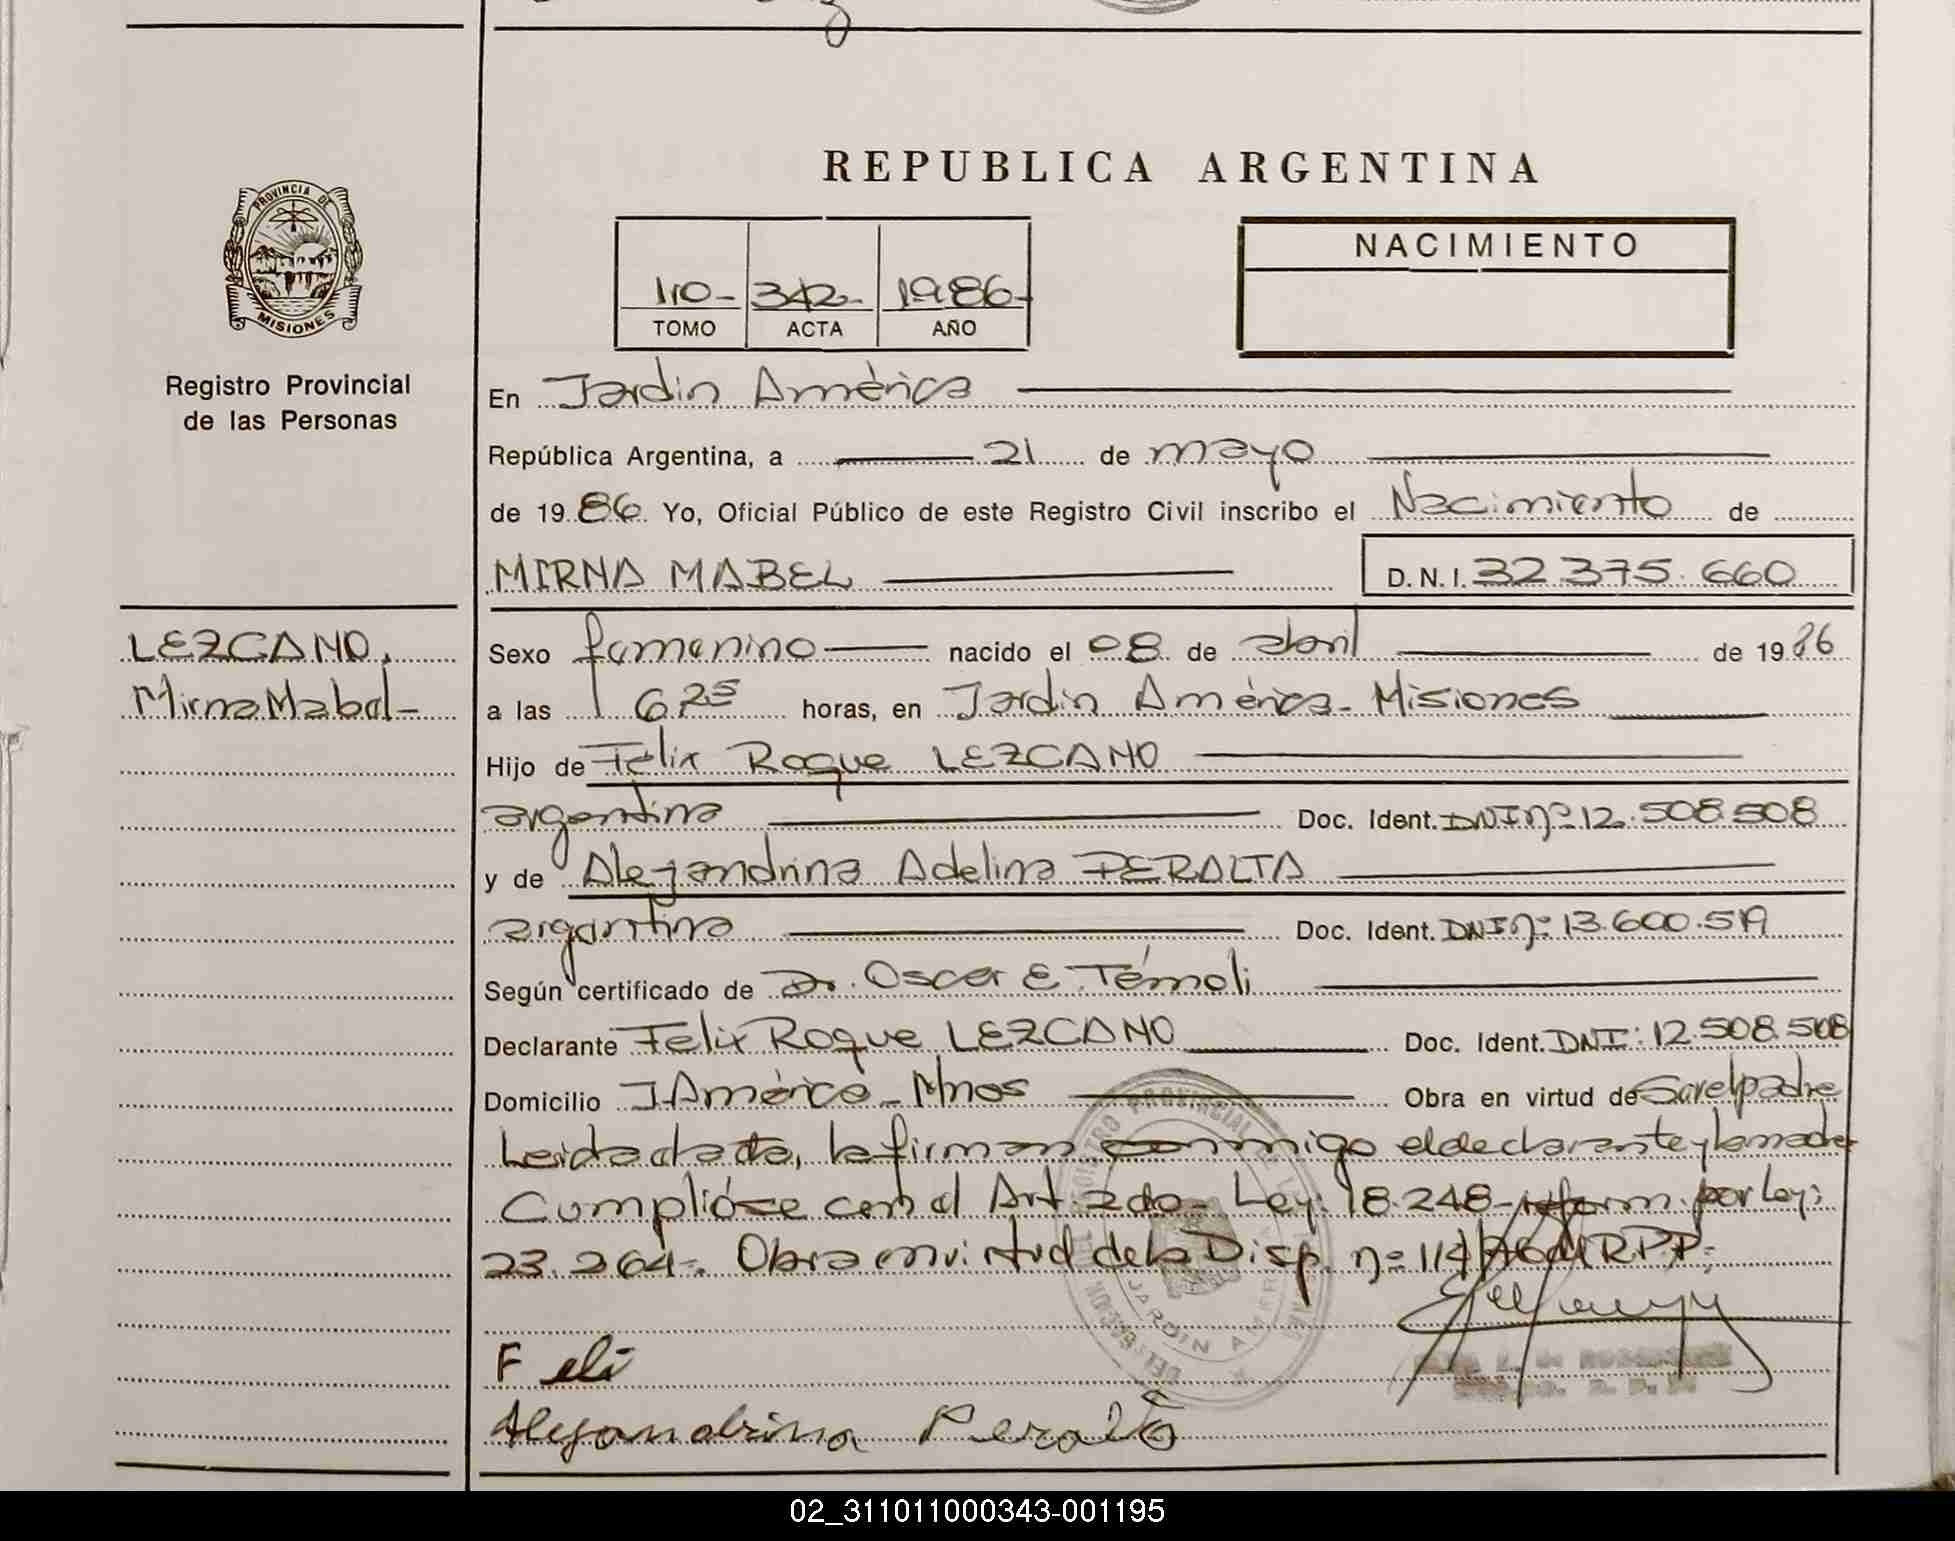 REPUBLICA ARGENTINA
PROVINCIA DE
MISIONES
Registro Provincial
de las Personas
110- 342- 1986-
TOMO ACTA AÑO
NACIMIENTO
En Jardin América
República Argentina, a 21 de mayo
de 1986 Yo, Oficial Público de este Registro Civil inscribo el Nacimiento de
MIRNA MABEL D.N.I. 32.375.660
LEZCANO,
Mirna Mabel-
Sexo femenino nacido el 08 de abril de 1986
a las 6,25 horas, en Jardin América- Misiones
Hijo de Felix Roque LEZCANO
argentina Doc. Ident. DNI nº 12.508.508
y de Alejandrina Adelina PERALTA
argentina Doc. Ident. DNI nº: 13.600.519
Según certificado de Dr. Oscar E. Témoli
Declarante Felix Roque LEZCANO Doc. Ident. DNI: 12.508.508
Domicilio J. América- Mnes Obra en virtud de Ser el padre
Leida el acta, la firman conmigo el declarante y la madre
Cumplióse con el Art. 2do- Ley: 18.248- reform. por Ley:
23.264-. Obra en virtud de la Disp. nº 114/76 MRPP.
REGISTRO PROVINCIAL DE LAS PERSONAS
JARDIN AMERICA
Feli
Alejandrina Peralta
02_311011000343-001195